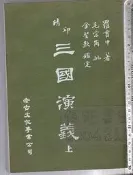 羅貫中 著
毛宗崗 批
金聖歎 鑑定
精印
三國演義
上
文化事業公司